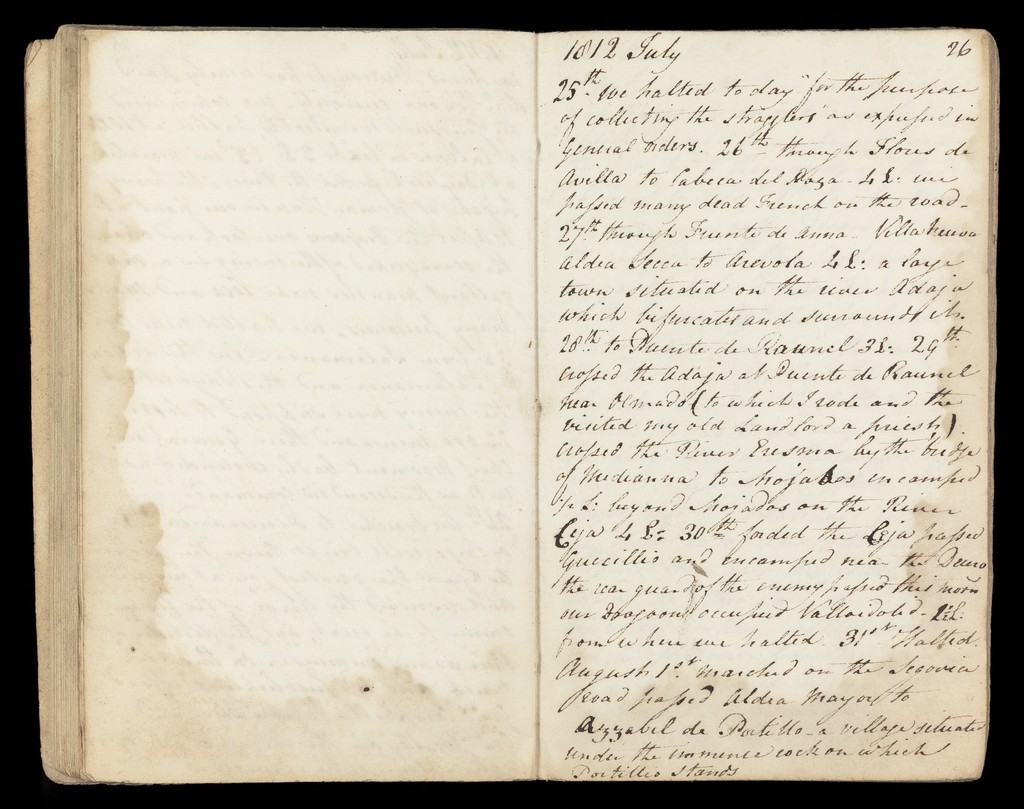 1812 July 26
25th. we halted to day "for the purpose
of collecting the stragglers" as expressed in
General orders. 26th through Flores de
Avilla to Cabeca del Haza - 4 L: we
passed many dead French on the road -
27th. through Fuente de Anna - Villa Nueva
Aldea Secca to Arevola 4 L: a large
town situated on the river Adaja
which bifurcates and surrounds it.
28th. to Puente de Raunel 3 L: 29th.
crossed the Adaja at Puente de Raunel
near Olmado (to which I rode and the
visited my old Landlord a priest)
crossed the River Eresma by the bridge
of Medianna to Mojados encamped
1/2 L: beyond Mojados on the River
Ceja 4 L: 30th forded the Ceja passed
Guccillio and encamped near the Deuro
the rear guard of the enemy passed this morn
our Dragoons occupied Valladolid -
from where we halted. 31st Halted.
August 1st. marched on the Segovia
road passed Aldea Mayor to
Azzabel de Portillo - a village situated
under the immence rock on which
Portillio stands